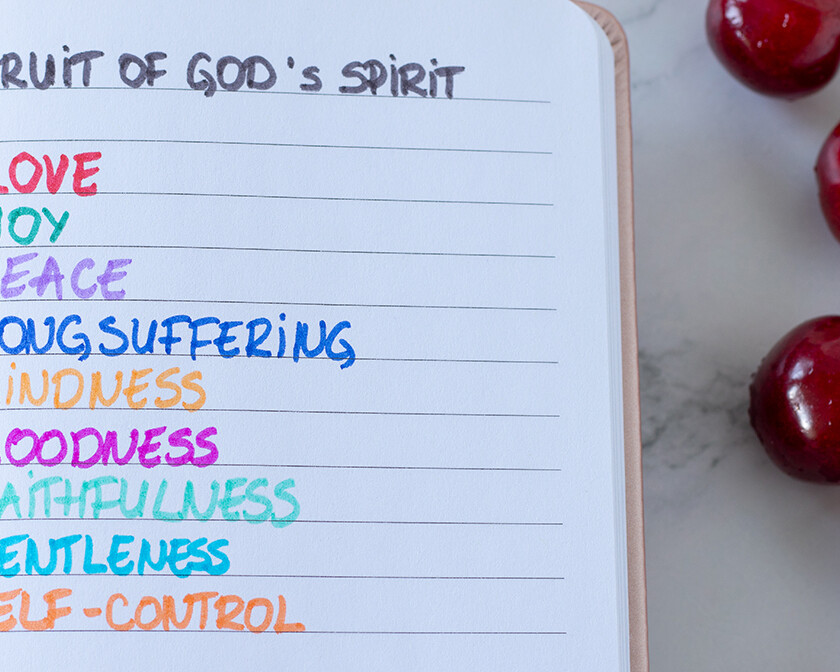 RUIT OF GOD's SPIRIT
LOVE
JOY
EACE
ONGSUFFERING
INDNESS
OODNESS
AITHFULNESS
ENTLENESS
ELF-CONTROL